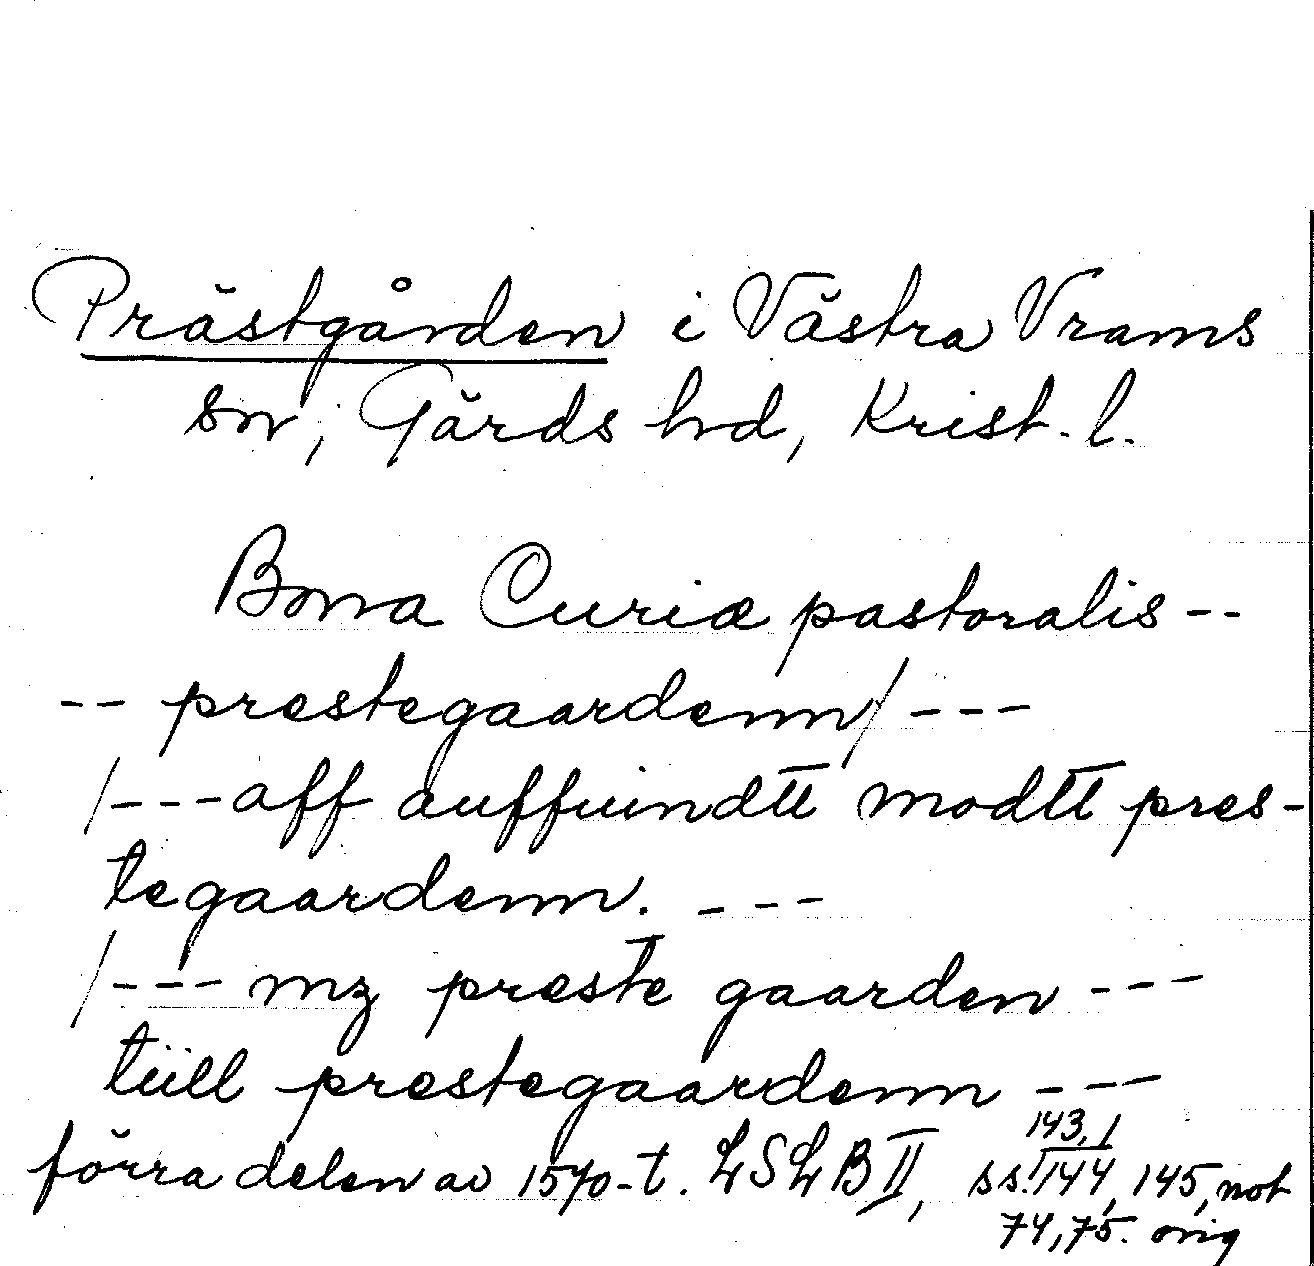 Prästgården i Västra Vrams
sn, Gärds hd, Krist. l.
Bona Curiæ pastoralis --
-- prestegaardenn/ ---
/--- aff auffuindtt modtt pres-
tegaardenn. ---
/--- mz præste gaarden ---
tiill prestegaardenn ---
143, /
förra delen av 1570-t. LSLB II, ss. 144, 145, not
74, 75. orig